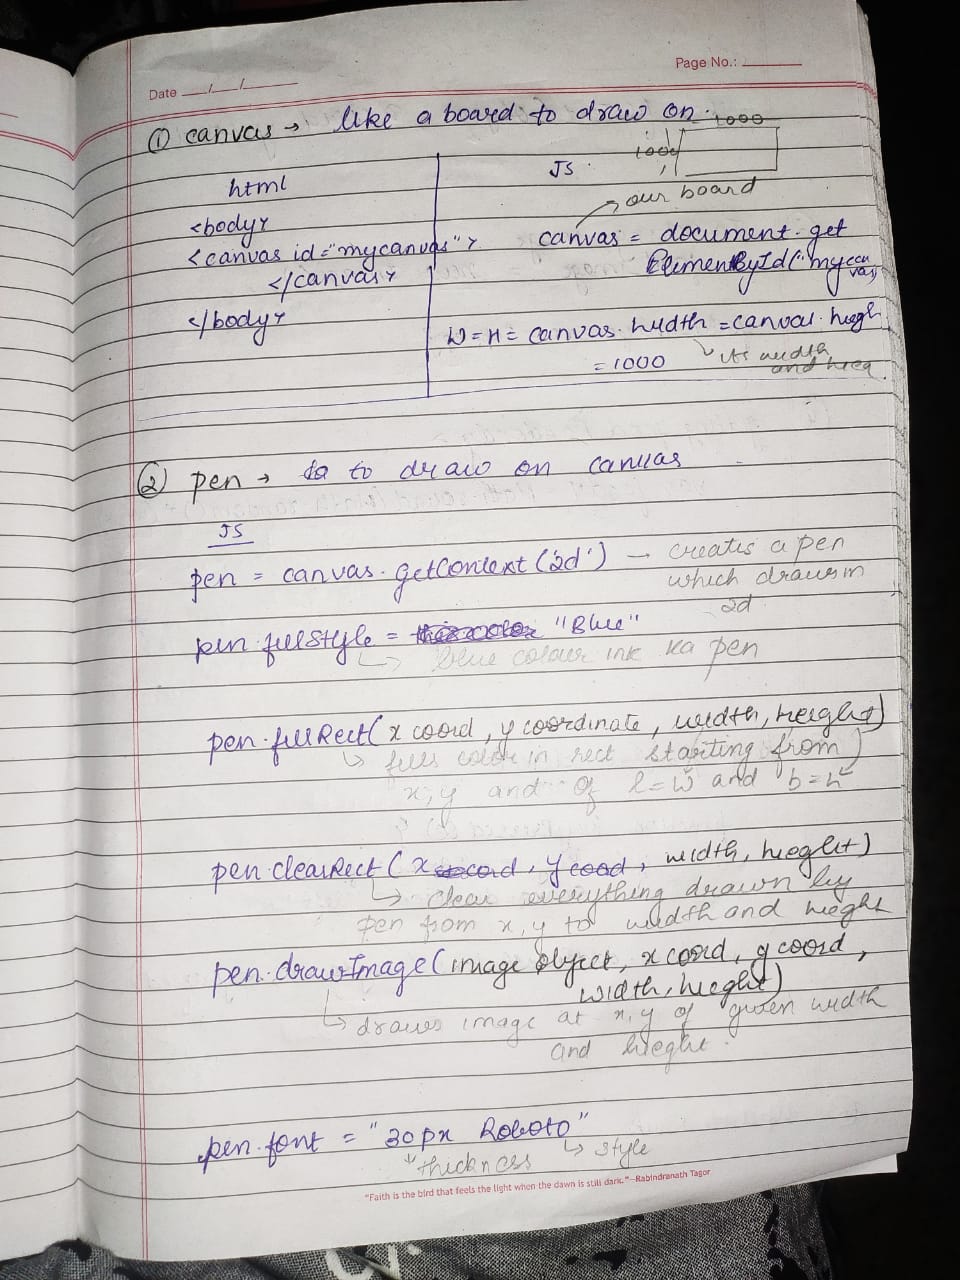 Page No.:
Date
① canvas → like a board to draw on.
1000
1000
html
JS
our board
<body>
<canvas id="mycanvas">
</canvas>
</body>
canvas = document.get
ElementById('mycan
vas)
W = H = canvas.width = canvas.heigh
= 1000
its width
and
② pen → to draw on canvas
JS
pen = canvas.getContext('2d') — creates a pen
which draws in
2d
pen.fillStyle = "Blue"
↳ blue colour ink ka pen
pen.fillRect(x coord, y coordinate, width, height)
↳ fills color in rect starting from
x, y and of l=w and b=h
pen.clearRect(x coord, y cood, width, hieght)
↳ clear everything drawn by
pen from x, y to width and hieght
pen.drawImage(image object, x coord, y coord,
width, hieght)
↳ draws image at x, y of given width
and hieght.
pen.font = "30px Roboto"
↓ thickness ↳ style
"Faith is the bird that feels the light when the dawn is still dark."—Rabindranath Tagor